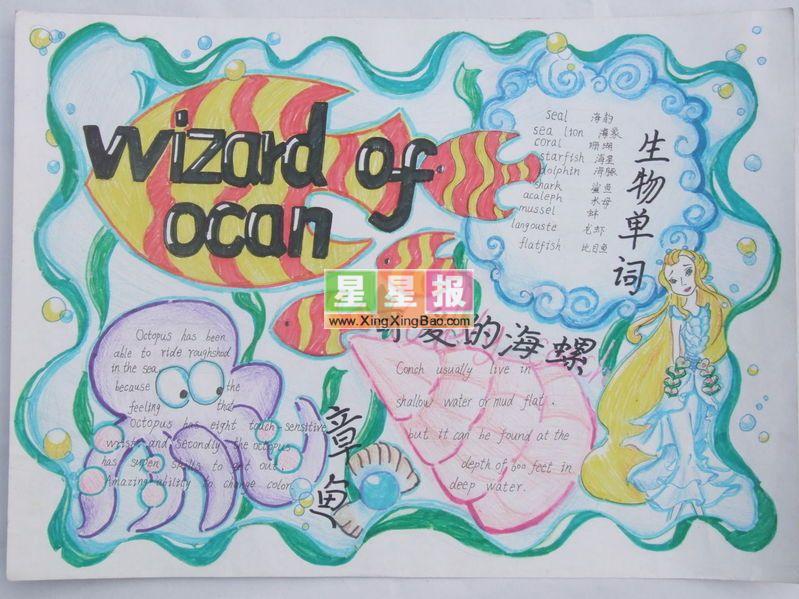 wizard of
ocan
seal 海豹
sea lion 海象
coral 珊瑚
starfish 海星
dolphin 海豚
shark 鲨鱼
acaleph 水母
mussel 蚌
langouste 龙虾
flatfish 比目鱼
生物单词
星星报
www.XingXingBao.com
爱的海螺
Octopus has been
able to ride roughshod
in the sea,
because the
feeling that
Octopus has eight touch-sensitive
and secondly, the octopus
has super skills to get out.
Amazing ability to change color
章鱼
Conch usually live in
shallow water or mud flat,
but it can be found at the
depth of 600 feet in
deep water.